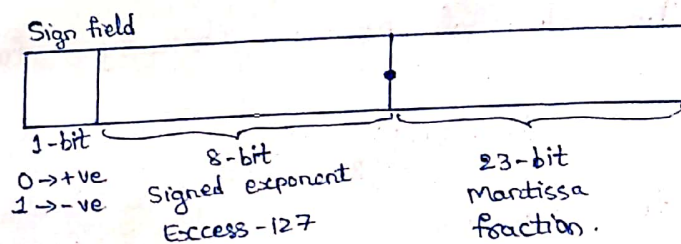 Sign field
1-bit
0→+ve
1→-ve
8-bit
Signed exponent
Excess-127
23-bit
Mantissa
fraction.